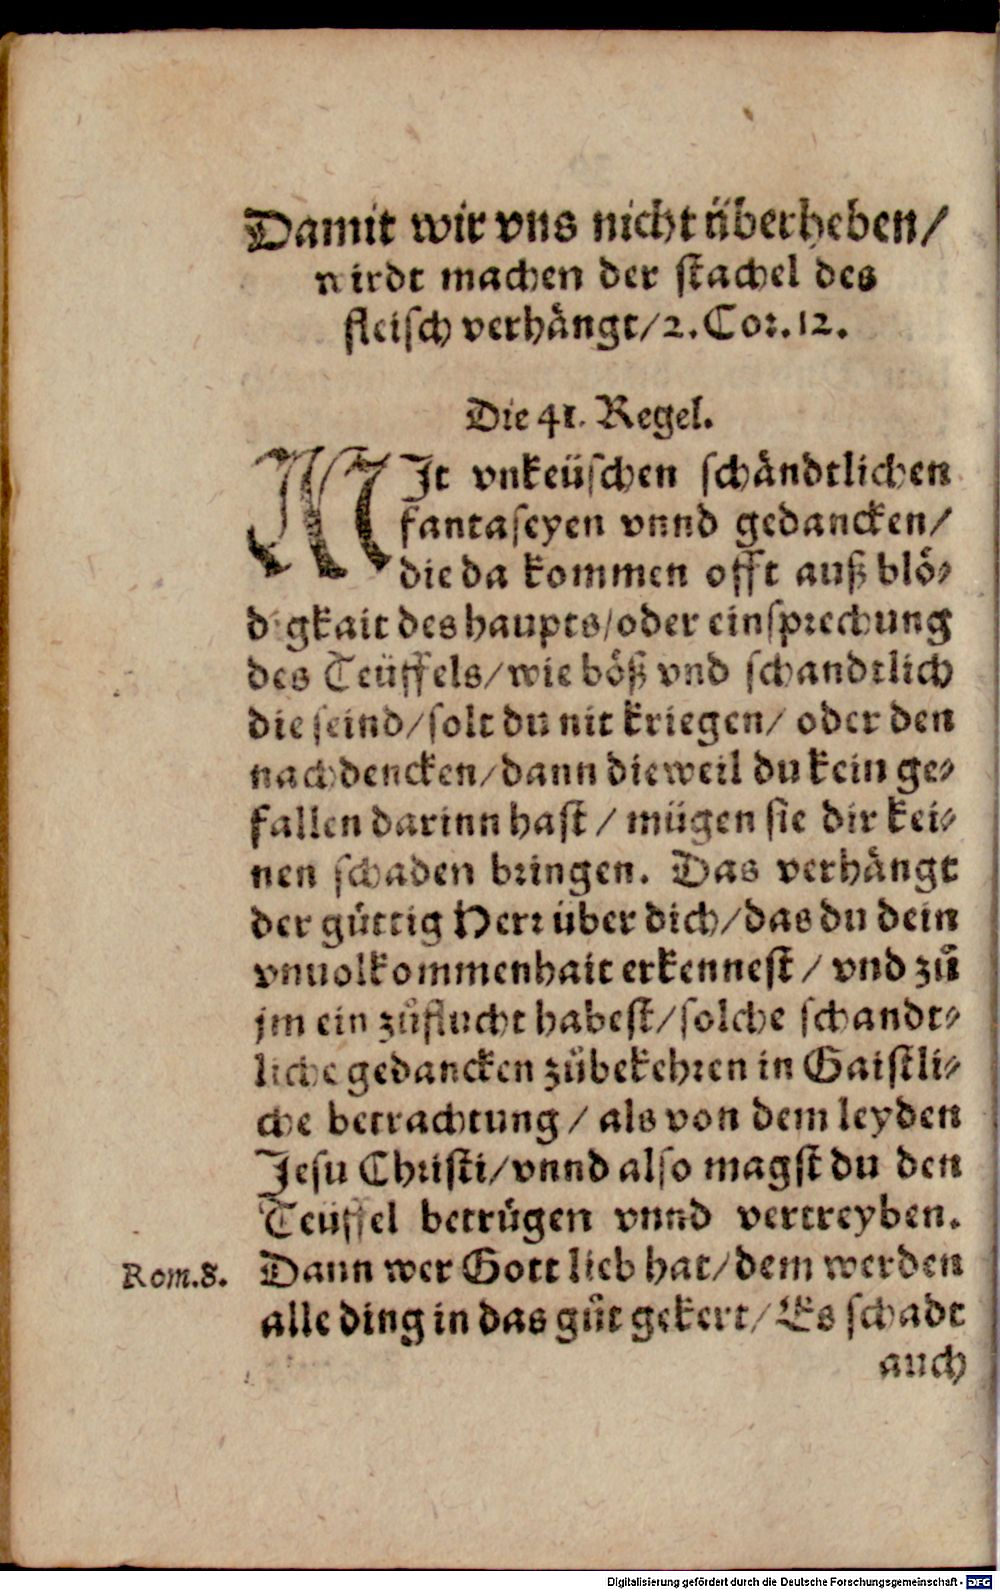 Damit wir vns nicht überheben/
wirdt machen der stachel des
fleisch verhängt/2.Cor.12.
Die 41. Regel.
MIt vnkeüschen schändtlichen
fantaseyen vnnd gedancken/
die da kommen offt auß blö-
digkait des haupts/oder einsprechung
des Teüffels/wie böß vnd schandtlich
die seind/solt du nit kriegen/ oder den
nachdencken/dann dieweil du kein ge-
fallen darinn hast / mügen sie dir kei-
nen schaden bringen. Das verhängt
der güttig Herr über dich/das du dein
vnuolkommenhait erkennest / vnd zů
jm ein zůflucht habest/solche schandt-
liche gedancken zůbekehren in Gaistli-
che betrachtung / als von dem leyden
Jesu Christi/vnnd also magst du den
Teüffel betrügen vnnd vertreyben.
Rom.8. Dann wer Gott lieb hat/dem werden
alle ding in das gůt gekert/ Es schadt
auch
Digitalisierung gefördert durch die Deutsche Forschungsgemeinschaft - DFG